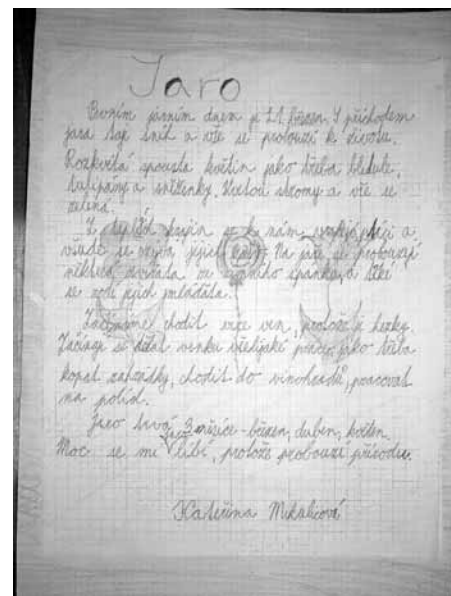 Jaro
Prvním jarním dnem je 21. březen. S příchodem
jara taje sníh a vše se probouzí k životu.
Rozkvétá spousta květin jako třeba bledule,
tulipány a sněženky. Kvetou stromy a vše se
zelená.
Z teplých krajin se k nám vracejí ptáci a
všude se ozývá jejich zpěv. Na jaře se probouzejí
některá zvířata ze zimního spánku, a také
se rodí jejich mláďata.
Začínáme chodit více ven, protože je hezky.
Začínají se dělat venku všelijaké práce, jako třeba
kopat zahrádky, chodit do vinohradů, pracovat
na polích.
Jaro trvá 3 měsíce - březen, duben, květen.
Moc se mi jaro líbí, protože probouzí přírodu.
Kateřina